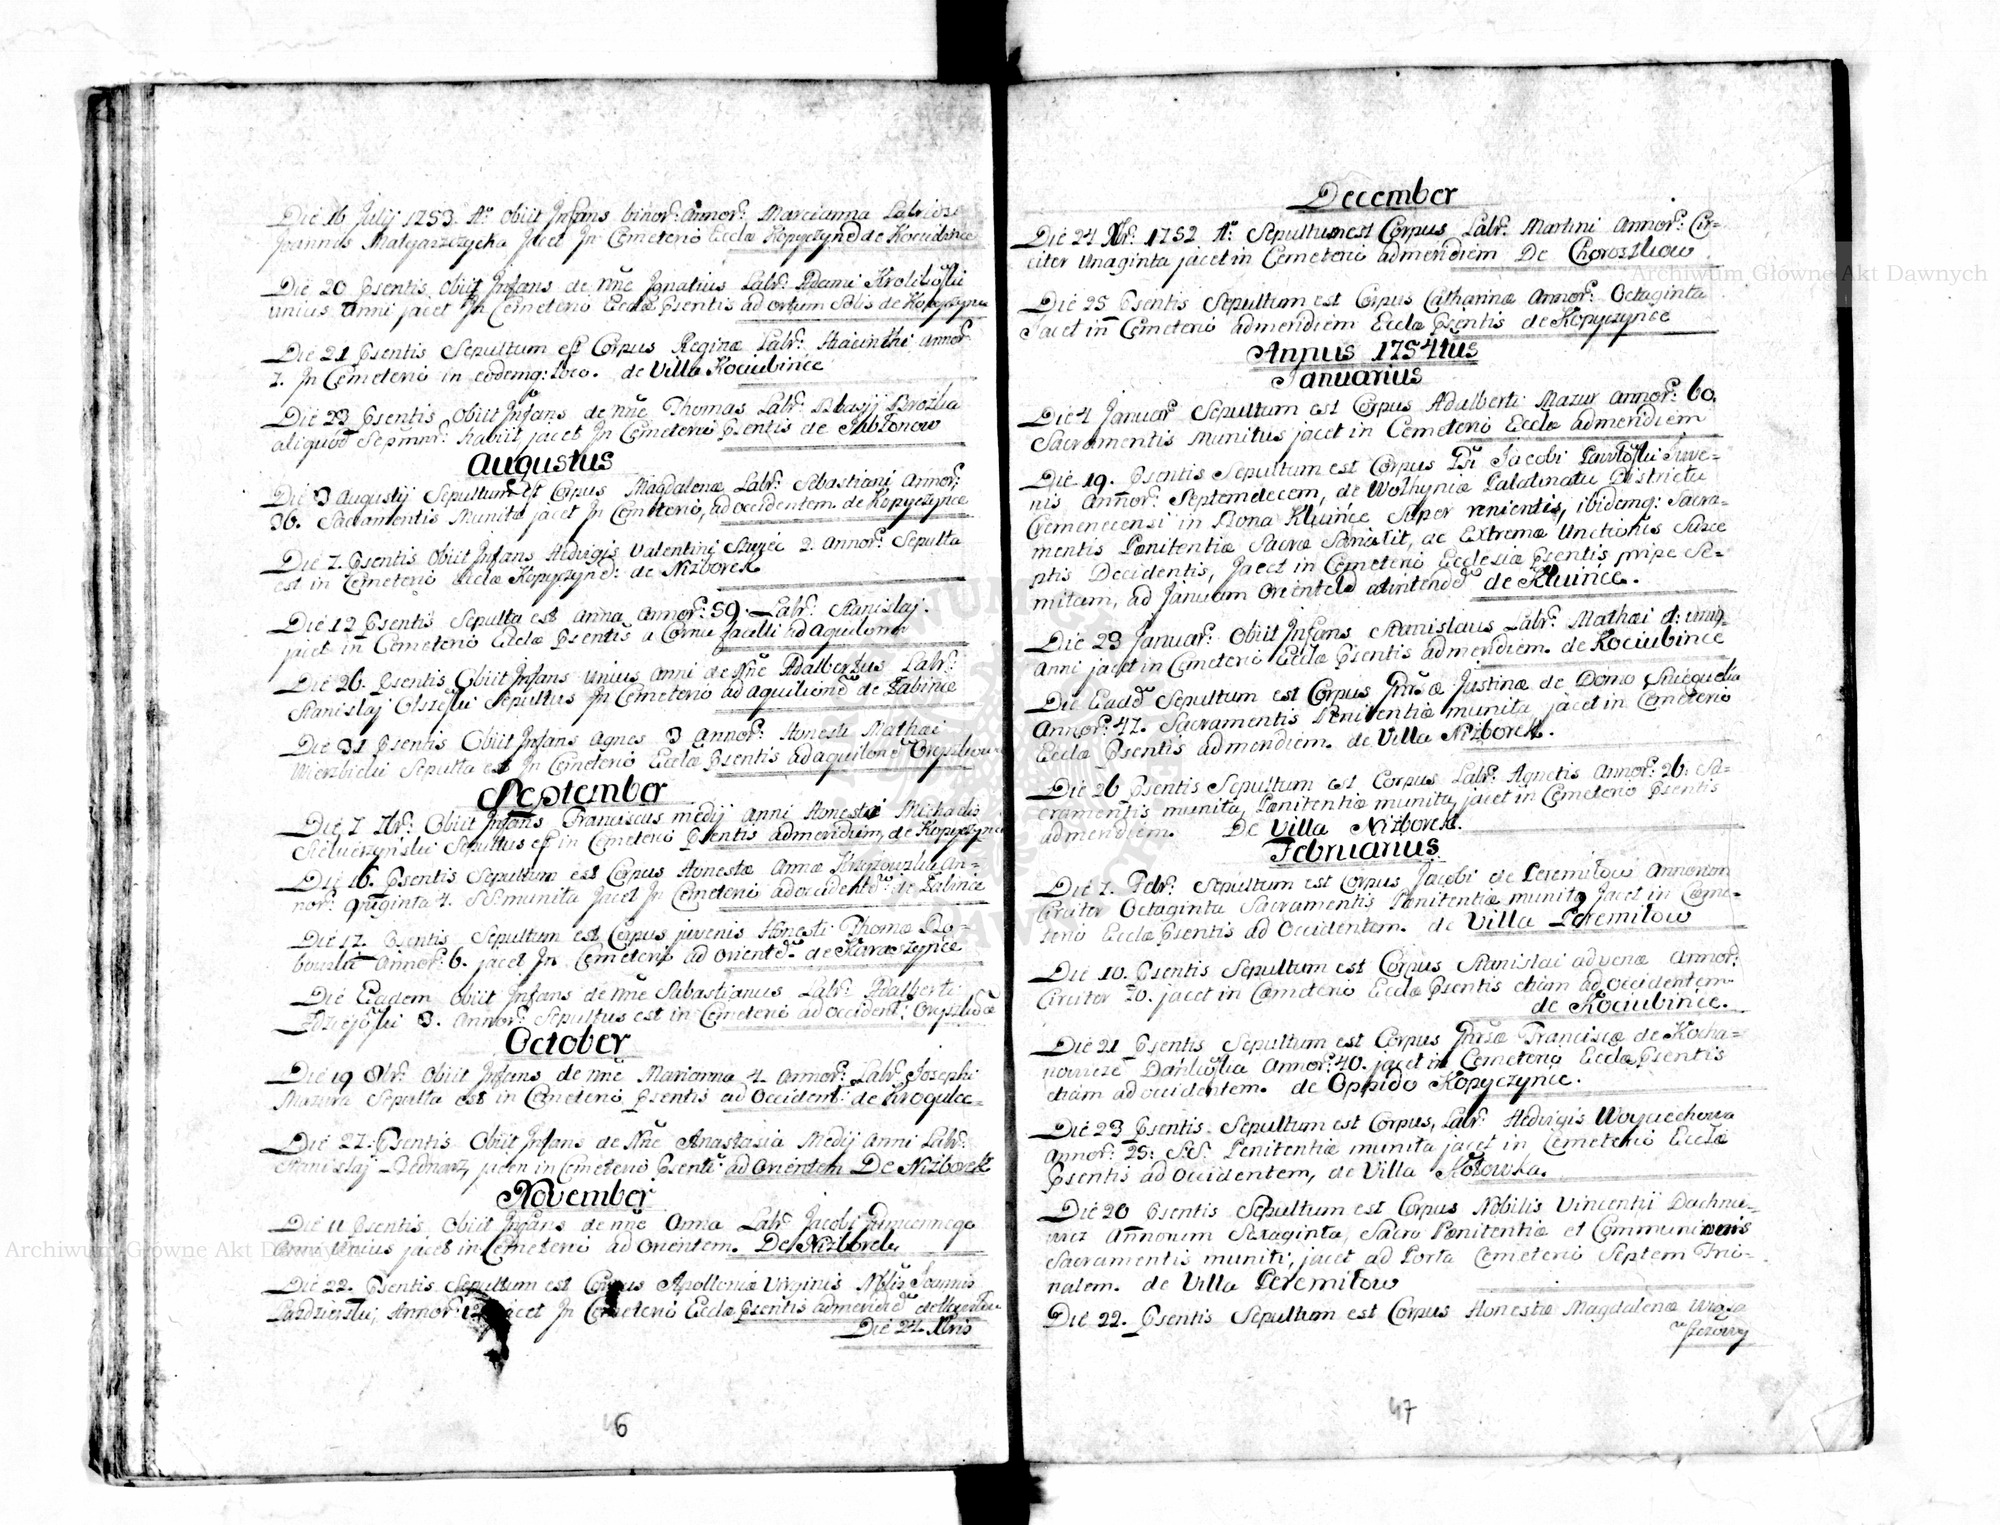 Die 16 Julij 1753. Ao. Obiit Infans binor: Annor: Marcianna Labriosi
Joannis Malgarzczycha Jacet In Cemeterio Ecclæ Kopyczynec de Kociubince
Die 20 Psentis Obiit Infans de nne Ignatius Labr: Adami
unius Anni jacet In Cemeterio Ecclæ Psentis ad ortum Solis de Kopyczynce
Die 21 Psentis Sepultum est Corpus Reginæ Labr: Hiacinthi Annor:
7. In Cemeterio in eodemq: Loco. de Villa Kociubince
Die 23 Psentis Obiit Infans de nne Thomas Labr:
aliquod Sepmnr: habuit jacet In Cemeterio Psentis de Jabłonow
Augustus
Die 3 Augustij Sepultum est Corpus Magdalenæ Labr: Sebastiani Annor:
36. Sacramentis Munita jacet In Cemeterio, ad occidentem de Kopyczynce
Die 7. Psentis Obiit Infans Hedvigis Valentini 2. Annor: Sepulta
est in Cemeterio Ecclæ Kopyczync: de Nizborek
Die 12 Psentis Sepulta est Anna Annor: 59. Labr: Stanislaj.
jacet in Cemeterio Ecclæ Psentis a Cornu Sacelli ad aquilonem
Die 26. Psentis Obiit Infans unius Anni de Nne Adalbertus Labr:
Stanislaj Olszeski Sepultus In Cemeterio ad aquilonem de Zabince
Die 31 Psentis Obiit Infans Agnes 3 Annor: Honesti Mathæi
Wierzbicki Sepulta est In Cemeterio Ecclæ Psentis ad aquilonem
September
Die 7 7br: Obiit Infans Franciscus medij Anni Honesti Michaelis
Sepultus est in Cemeterio Psentis ad meridiem, de Kopyczynce
Die 16. Psentis Sepultum est Corpus Honestæ Annæ An-
nor: 4. SS. munita Jacet In Cemeterio ad occident: de Zabince
Die 17. Psentis Sepultum est Corpus juvenis Honesti Thomæ
Annor: 6. jacet In Cemeterio ad orient: de
Die Eadem Obiit Infans de nne Sebastianus Labr: Adalberti
3. Annor: Sepultus est in Cemeterio ad occident:
October
Die 19 8br: Obiit Infans de nne Marianna 4. Annor: Labr: Josephi
Mazura Sepulta est in Cemeterio Psentis ad Occident: de Krogulce-
Die 27: Psentis Obiit Infans de Nne Anastasia Medij Anni Labr:
Stanislaj Bednarz, jacen in Cemeterio Psenti: ad Orientem De Nizborek
November
Die 11 Psentis Obiit Infans de nne Anna Labr: Jacobi
Anni Unius jacet in Cemeterio ad Orientem. De Nizborek
Die 22. Psentis Sepultum est Corpus Apolloniæ Virginis
Annor: 12 jacet In Cemeterio Ecclæ Psentis ad meridiem
Die 24. Xbris
46
December
Die 24 Xbr: 1752 Ao: Sepultum est Corpus Labr: Martini Annor: Cir-
citer unaginta jacet in Cemeterio ad meridiem De Chorostkow
Die 25 Psentis Sepultum est Corpus Catharinæ Annor: Octaginta
Jacet in Cemeterio ad meridiem Ecclæ Psentis de Kopyczynce
Annus 1754tus
Januarius
Die 4 Januar: Sepultum est Corpus Adalberti Mazur Annor: 60.
Sacramentis Munitus jacet in Cemeterio Ecclæ ad meridiem
Die 19. Psentis Sepultum est Corpus Jacobi Juve-
nis Annor: Septemdecem, de Wolhyniæ Palatinatu Districtu
Cremenecensi in Bona Kluince Super venientis, ibidemq: Sacra-
mentis Pænitentiæ Sacræ ac Extremæ Unctionis Susce
ptis Decidentis, Jacet in Cemeterio Ecclesiæ Psentis prope Se-
mitam, ad Januam Orientalem de Kluince.
Die 23 Januar: Obiit Infans Stanislaus Labr: Mathæi
Anni jacet in Cemeterio Ecclæ Psentis ad meridiem. de Kociubince
Die Eadem Sepultum est Corpus Justinæ de Domo
Annor: 47. Sacramentis Penitentiæ munita jacet in Cemeterio
Ecclæ Psentis ad meridiem. de Villa Nizborek.
Die 26 Psentis Sepultum est Corpus Labr: Agnetis Annor: 26. Sa-
cramentis munita, Pænitentiæ munita, jacet in Cemeterio Psentis
ad meridiem. De Villa Nizborek.
Februarius
Die 7. Febr: Sepultum est Corpus Jacobi de Peremilow Annorum
Circiter Octaginta Sacramentis Penitentiæ munita Jacet in Ceme-
terio Ecclæ Psentis ad Occidentem. de Villa Peremilow
Die 10. Psentis Sepultum est Corpus Stanislai advenæ Annor:
Circiter 20. jacet in Cæmeterio Ecclæ Psentis etiam ad occidentem
de Kociubince.
Die 21 Psentis Sepultum est Corpus Franciscæ de Kocha-
Annor: 40. jacet in Cemeterio Ecclæ Psentis
etiam ad occidentem. de Oppido Kopyczynce.
Die 23 Psentis Sepultum est Corpus, Labr: Hedvigis Woyciechowa
Annor: 25: SS. Penitentiæ munita jacet in Cemeterio Ecclæ
Psentis ad Occidentem, de Villa Kotowka.
Die 20 Psentis Sepultum est Corpus Nobilis Vincentij Dachno-
wicz Annorum Sexaginta, Sacro Pænitentiæ et Communionis
Sacramentis muniti, jacet ad Porta Cemeterio Septem Trio-
nalem. de Villa Peremilow
Die 22. Psentis Sepultum est Corpus Honestæ Magdalenæ
47
Archiwum Główne Akt Dawnych
Archiwum Główne Akt Dawnych